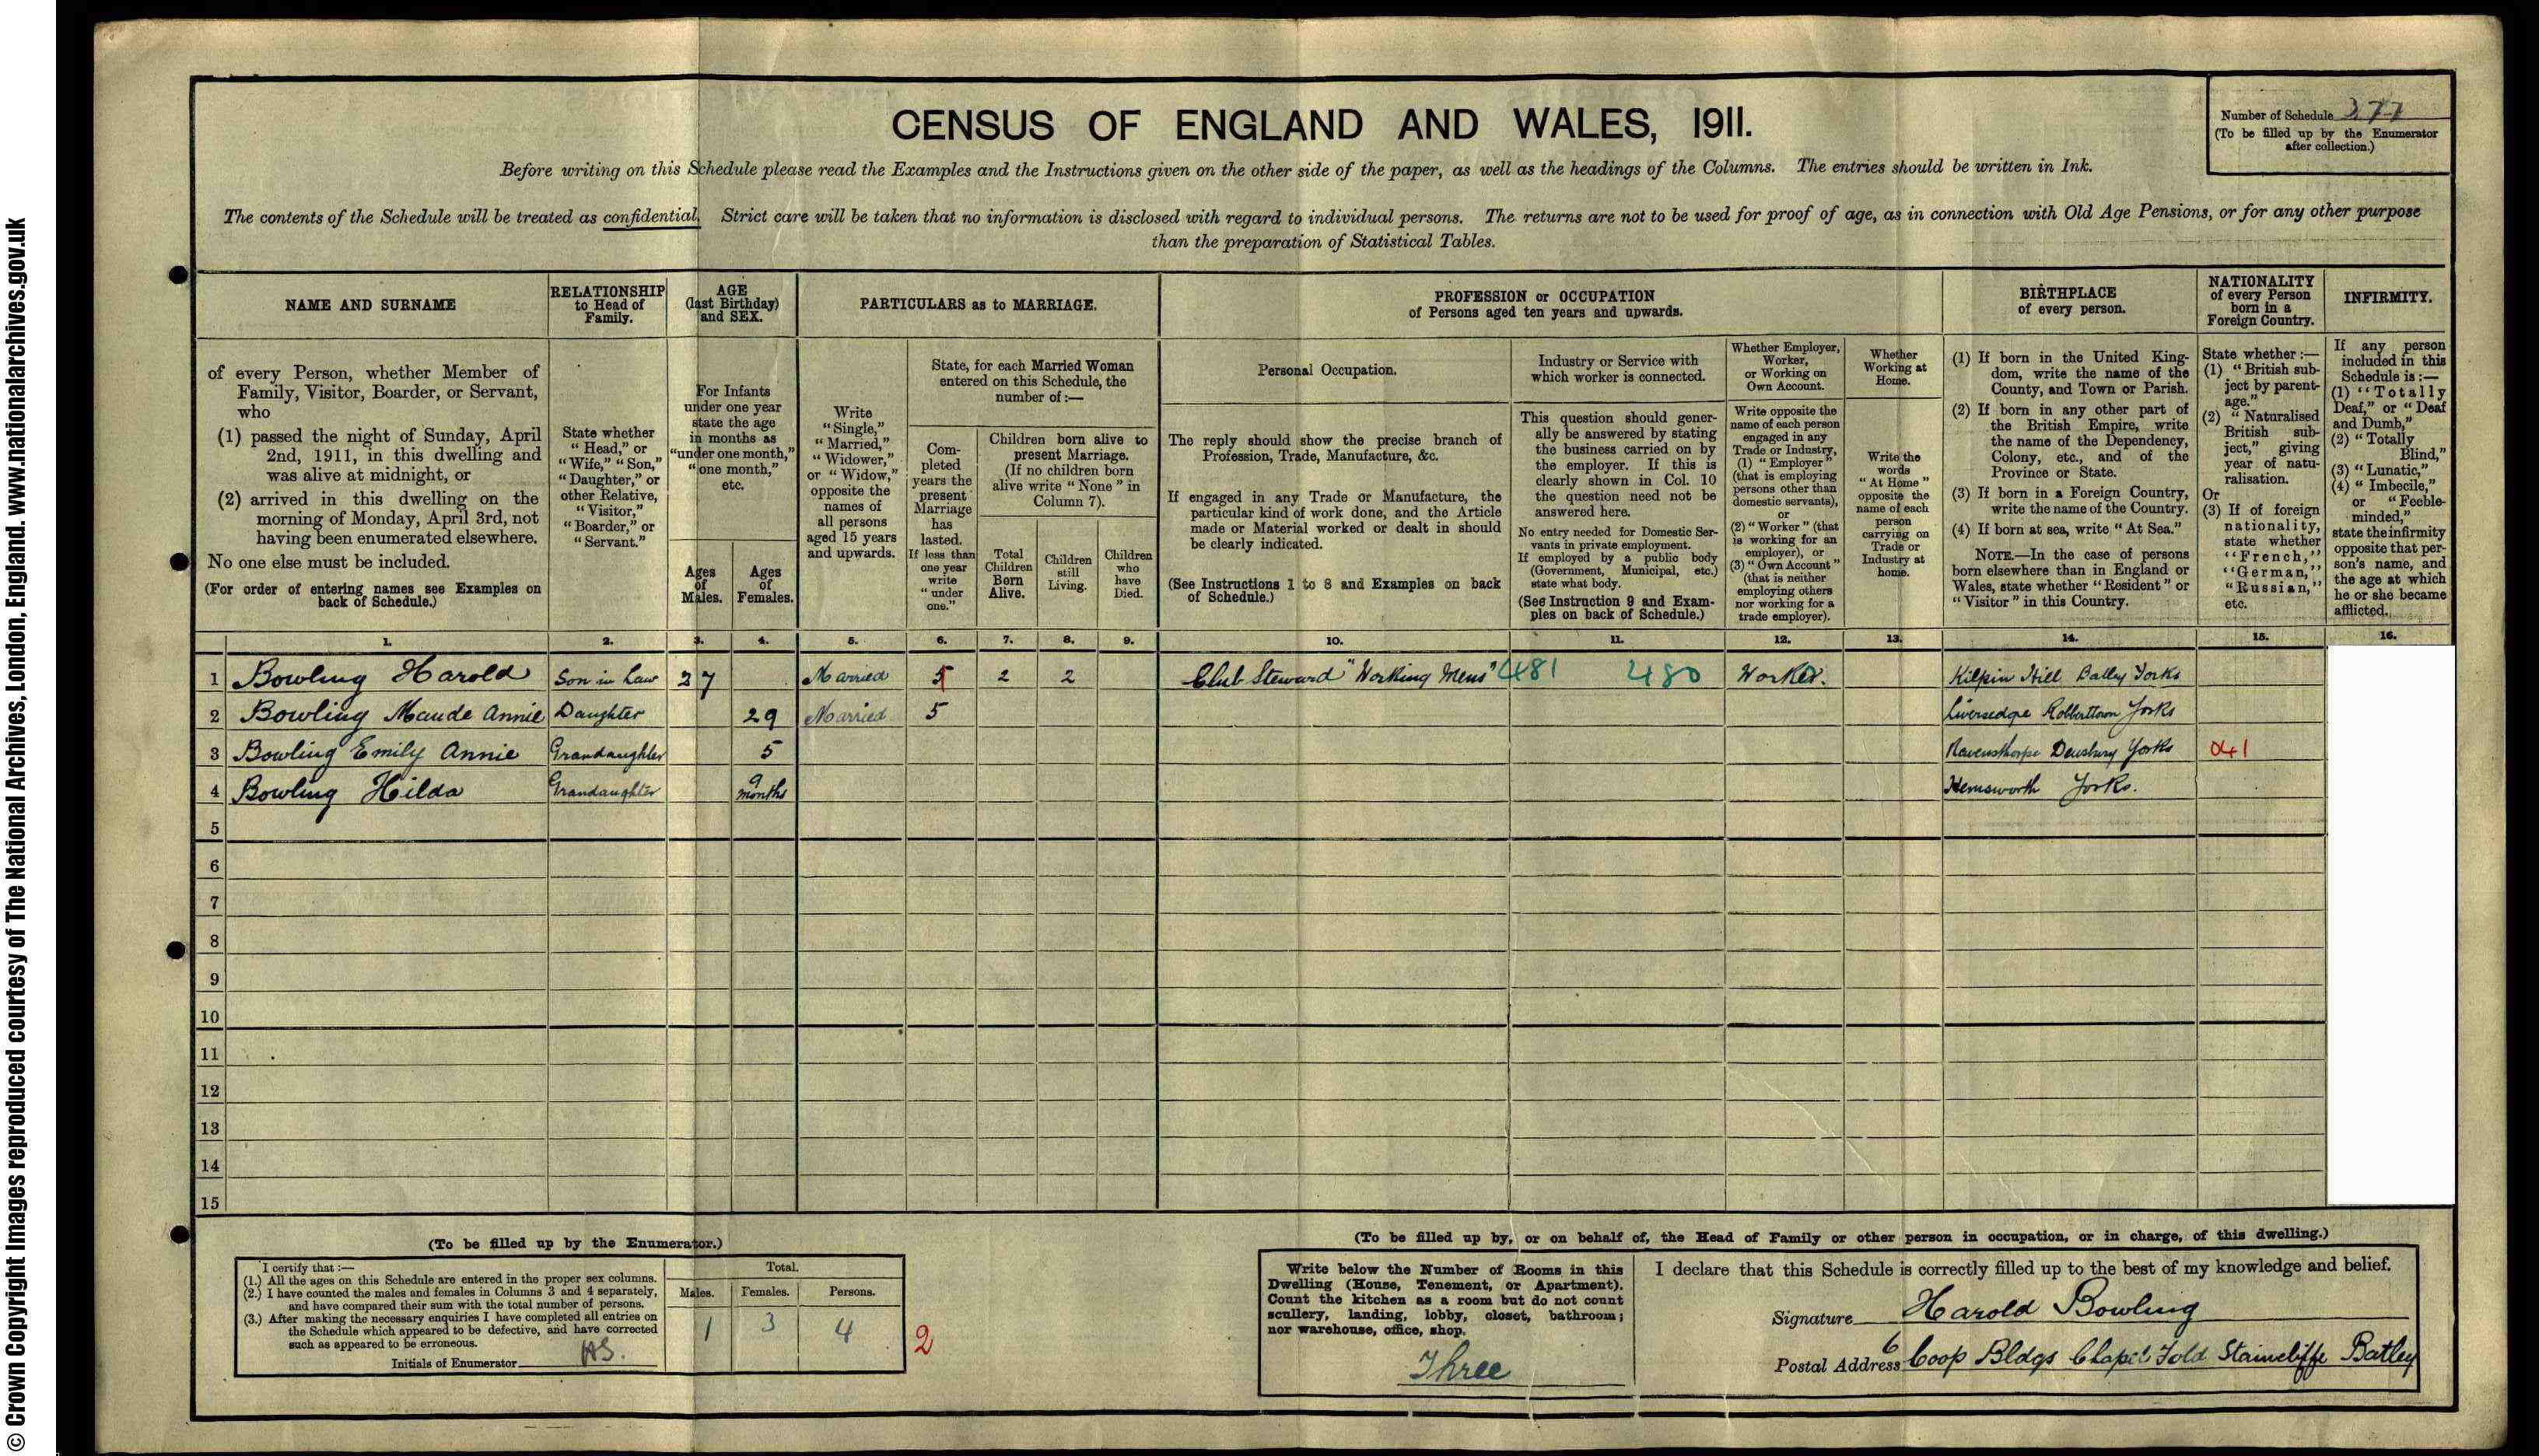 © Crown Copyright Images reproduced courtesy of The National Archives, London, England. www.nationalarchives.gov.uk
CENSUS OF ENGLAND AND WALES, 1911.
Number of Schedule 377
(To be filled up by the Enumerator
after collection.)
Before writing on this Schedule please read the Examples and the Instructions given on the other side of the paper, as well as the headings of the Columns. The entries should be written in Ink.
The contents of the Schedule will be treated as confidential. Strict care will be taken that no information is disclosed with regard to individual persons. The returns are not to be used for proof of age, as in connection with Old Age Pensions, or for any other purpose
than the preparation of Statistical Tables.
NAME AND SURNAME
of every Person, whether Member of
Family, Visitor, Boarder, or Servant,
who
(1) passed the night of Sunday, April
2nd, 1911, in this dwelling and
was alive at midnight, or
(2) arrived in this dwelling on the
morning of Monday, April 3rd, not
having been enumerated elsewhere.
No one else must be included.
(For order of entering names see Examples on
back of Schedule.)
RELATIONSHIP
to Head of
Family.
State whether
"Head," or
"Wife," "Son,"
"Daughter," or
other Relative,
"Visitor,"
"Boarder," or
"Servant."
AGE
(last Birthday)
and SEX.
For Infants
under one year
state the age
in months as
"under one month,"
"one month,"
etc.
Ages
of
Males.
Ages
of
Females.
PARTICULARS as to MARRIAGE.
Write
"Single,"
"Married,"
"Widower,"
or "Widow,"
opposite the
names of
all persons
aged 15 years
and upwards.
State, for each Married Woman
entered on this Schedule, the
number of :—
Com-
pleted
years the
present
Marriage
has
lasted.
If less than
one year
write
"under
one."
Children born alive to
present Marriage.
(If no children born
alive write "None" in
Column 7).
Total
Children
Born
Alive.
Children
still
Living.
Children
who
have
Died.
PROFESSION or OCCUPATION
of Persons aged ten years and upwards.
Personal Occupation.
The reply should show the precise branch of
Profession, Trade, Manufacture, &c.
If engaged in any Trade or Manufacture, the
particular kind of work done, and the Article
made or Material worked or dealt in should
be clearly indicated.
(See Instructions 1 to 8 and Examples on back
of Schedule.)
Industry or Service with
which worker is connected.
This question should gener-
ally be answered by stating
the business carried on by
the employer. If this is
clearly shown in Col. 10
the question need not be
answered here.
No entry needed for Domestic Ser-
vants in private employment.
If employed by a public body
(Government, Municipal, etc.)
state what body.
(See Instruction 9 and Exam-
ples on back of Schedule.)
Whether Employer,
Worker,
or Working on
Own Account.
Write opposite the
name of each person
engaged in any
Trade or Industry,
(1) "Employer"
(that is employing
persons other than
domestic servants),
or
(2) "Worker" (that
is working for an
employer), or
(3) "Own Account"
(that is neither
employing others
nor working for a
trade employer).
Whether
Working at
Home.
Write the
words
"At Home"
opposite the
name of each
person
carrying on
Trade or
Industry at
home.
BIRTHPLACE
of every person.
(1) If born in the United King-
dom, write the name of the
County, and Town or Parish.
(2) If born in any other part of
the British Empire, write
the name of the Dependency,
Colony, etc., and of the
Province or State.
(3) If born in a Foreign Country,
write the name of the Country.
(4) If born at sea, write "At Sea."
NOTE.—In the case of persons
born elsewhere than in England or
Wales, state whether "Resident" or
"Visitor" in this Country.
NATIONALITY
of every Person
born in a
Foreign Country.
State whether :—
(1) "British sub-
ject by parent-
age."
(2) "Naturalised
British sub-
ject," giving
year of natu-
ralisation.
Or
(3) If of foreign
nationality,
state whether
"French,"
"German,"
"Russian,"
etc.
INFIRMITY.
If any person
included in this
Schedule is :—
(1) "Totally
Deaf," or "Deaf
and Dumb,"
(2) "Totally
Blind,"
(3) "Lunatic,"
(4) "Imbecile,"
or "Feeble-
minded,"
state the infirmity
opposite that per-
son's name, and
the age at which
he or she became
afflicted.
1. 2. 3. 4. 5. 6. 7. 8. 9. 10. 11. 12. 13. 14. 15. 16.
1 Bowling Harold Son in Law 37 Married 5 2 2 Club Steward "Working Mens" 481 480 Worker. Kilpin Hill Batley Yorks
2 Bowling Maude Annie Daughter 29 Married 5 Liversedge Robberttown Yorks
3 Bowling Emily Annie Grandaughter 5 Ravensthorpe Dewsbury Yorks 041
4 Bowling Hilda Grandaughter 9 months Hemsworth Yorks.
5
6
7
8
9
10
11
12
13
14
15
(To be filled up by the Enumerator.)
I certify that :—
(1.) All the ages on this Schedule are entered in the proper sex columns.
(2.) I have counted the males and females in Columns 3 and 4 separately,
and have compared their sum with the total number of persons.
(3.) After making the necessary enquiries I have completed all entries on
the Schedule which appeared to be defective, and have corrected
such as appeared to be erroneous.
Initials of Enumerator HS.
Total.
Males. Females. Persons.
1 3 4
2
(To be filled up by, or on behalf of, the Head of Family or other person in occupation, or in charge, of this dwelling.)
Write below the Number of Rooms in this
Dwelling (House, Tenement, or Apartment).
Count the kitchen as a room but do not count
scullery, landing, lobby, closet, bathroom;
nor warehouse, office, shop.
Three
I declare that this Schedule is correctly filled up to the best of my knowledge and belief.
Signature Harold Bowling
Postal Address 6 Coop Bldgs Chapel Fold Staincliffe Batley